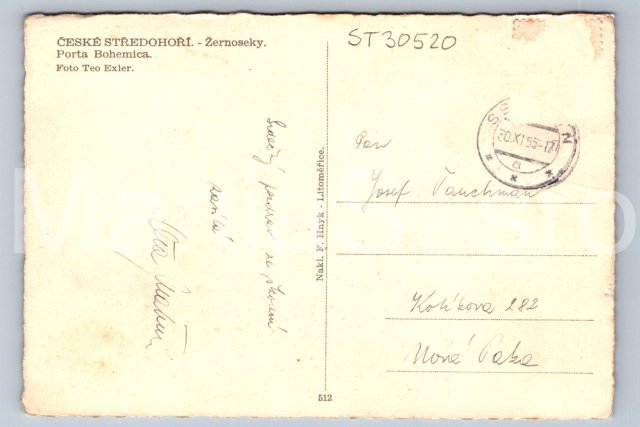 ČESKÉ STŘEDOHOŘÍ. - Žernoseky.
Porta Bohemica.
Foto Teo Exler.
ST30520
Srdečný pozdrav ze
zasílá
Nakl. F. Hnyk - Litoměřice.
512
30.XI.55-17
a
Pan
Josef Pauchman
Kotíkova 282
Nová Paka